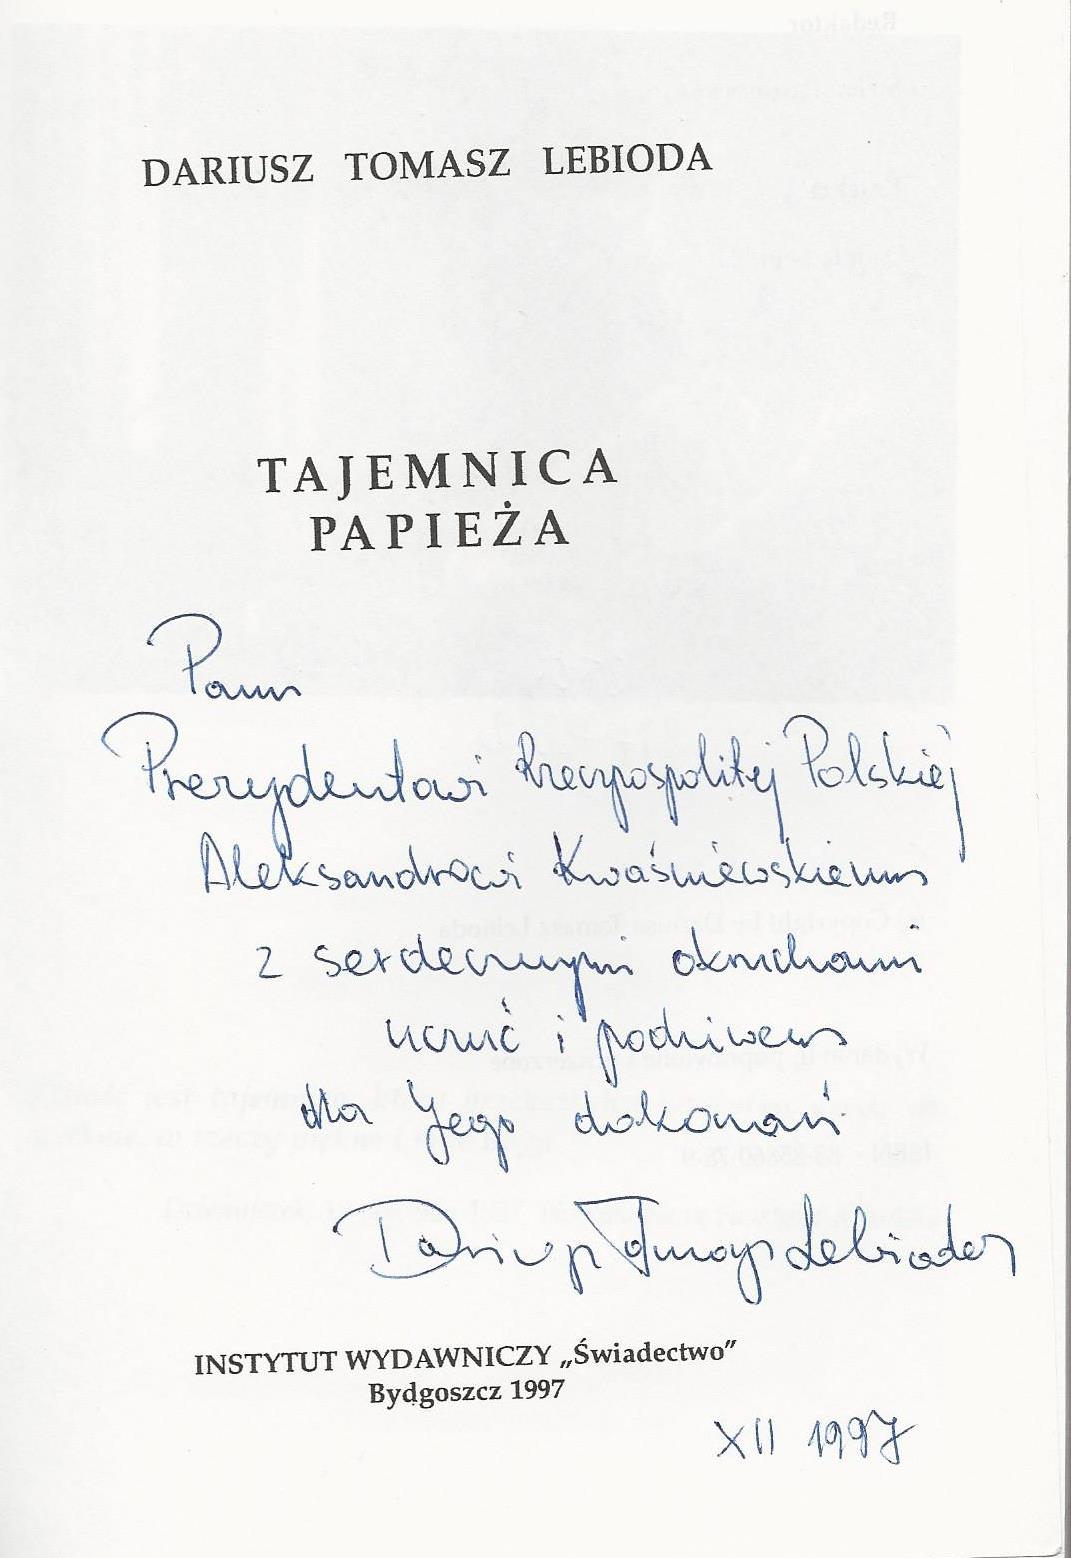 DARIUSZ TOMASZ LEBIODA
TAJEMNICA
PAPIEŻA
Panu
Prezydentowi Rzeczypospolitej Polskiej
Aleksandrowi Kwaśniewskiemu
z serdecznymi
uczuć i podziwem
dla Jego dokonań
Dariusz Tomasz Lebioda
INSTYTUT WYDAWNICZY „Świadectwo”
Bydgoszcz 1997
XII 1997